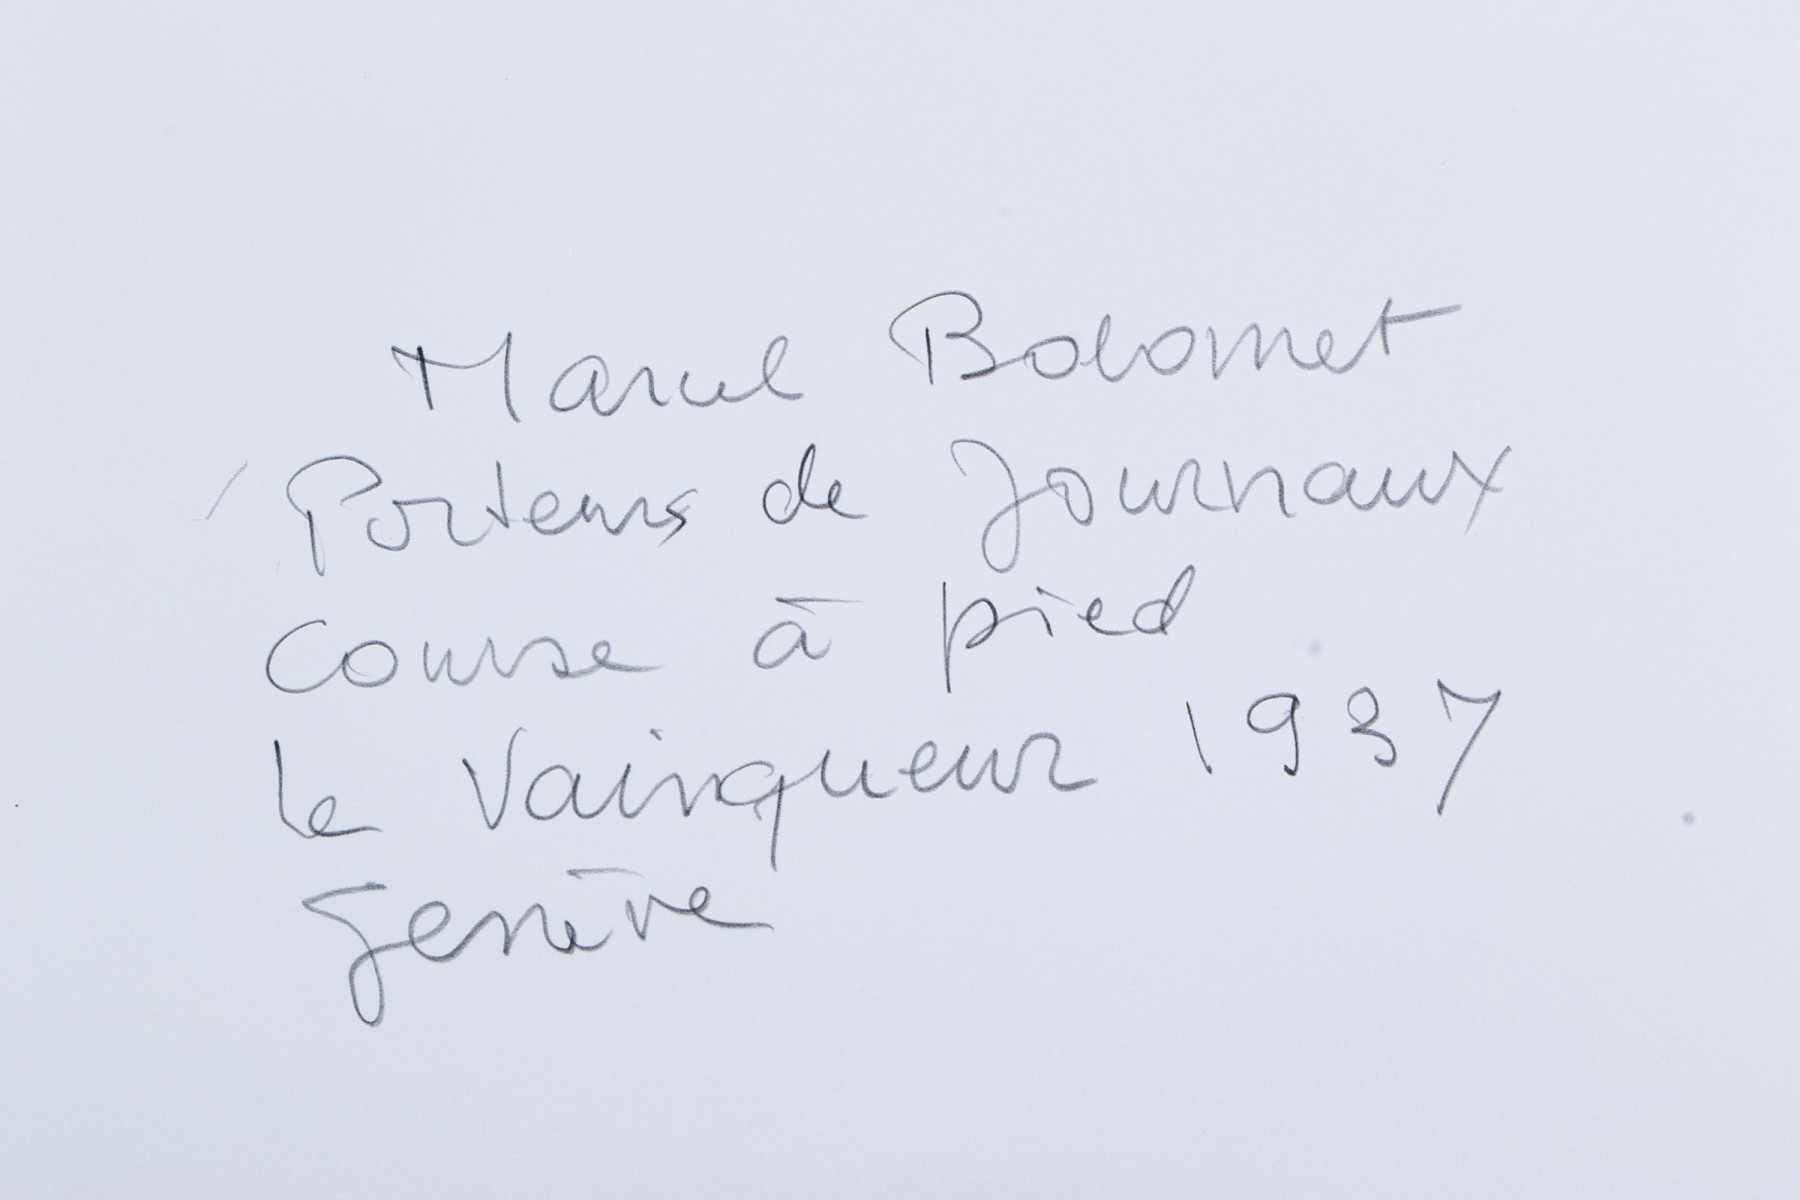 Marcel Bolomet
Porteurs de Journaux
Course à pied
le Vainqueur 1937
Genève